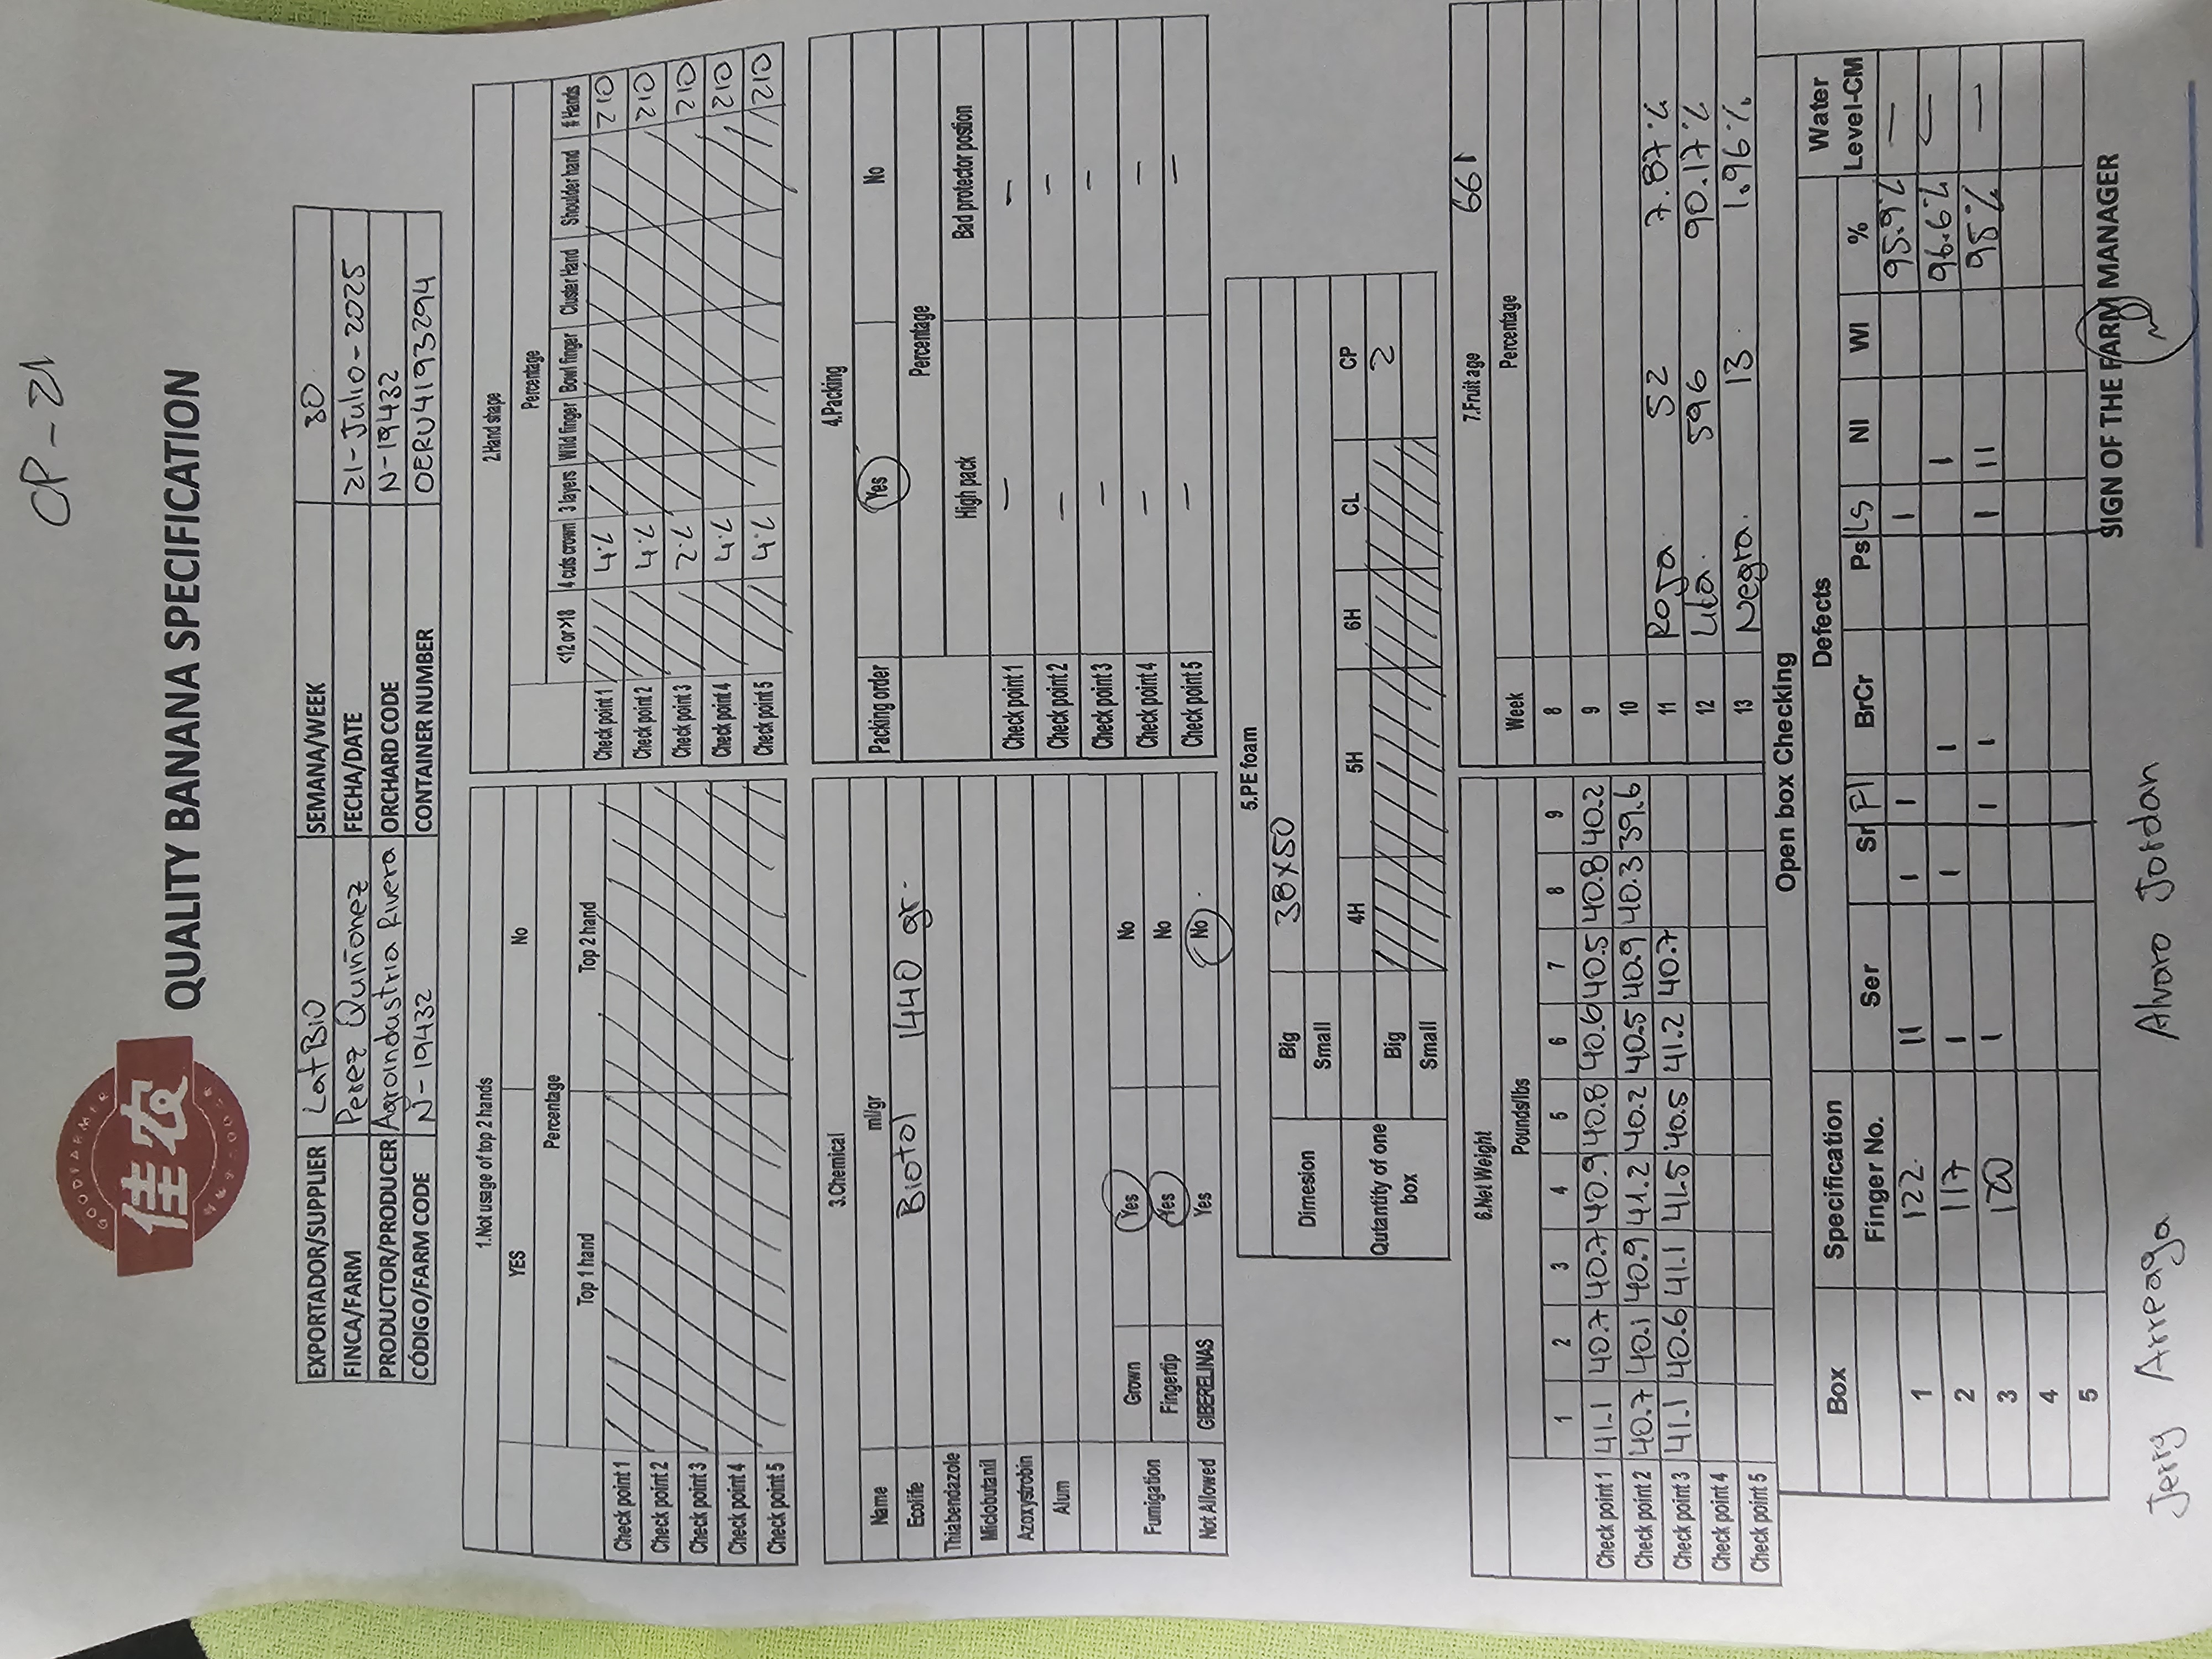 CP-21
GOODFARMER
佳农
QUALITY BANANA SPECIFICATION
EXPORTADOR/SUPPLIER LatBio SEMANA/WEEK 30
FINCA/FARM Perez Quiñonez FECHA/DATE 21-Julio-2025
PRODUCTOR/PRODUCER Agroindustria Rivera ORCHARD CODE N-19432
CÓDIGO/FARM CODE N-19432 CONTAINER NUMBER OERU4193294
1.Not usage of top 2 hands
YES No
Percentage
Top 1 hand Top 2 hand
Check point 1
Check point 2
Check point 3
Check point 4
Check point 5
2.Hand shape
Percentage
<12 or >18 4 cuts crown 3 layers Wild finger Bowl finger Cluster Hand Shoulder hand # Hands
Check point 1 4% 210
Check point 2 4% 210
Check point 3 2% 210
Check point 4 4% 210
Check point 5 4% 210
3.Chemical
Name ml/gr
Ecolife Biotol 1440 gr.
Thiabendazole
Miclobutanil
Azoxystrobin
Alum
Fumigation Grown Yes No
Fingertip Yes No
Not Allowed GIBERELINAS Yes No
4.Packing
Packing order Yes No
Percentage
High pack Bad protector postion
Check point 1 — —
Check point 2 — —
Check point 3 — —
Check point 4 — —
Check point 5 — —
5.PE foam
Dimesion Big 38x50
Small
4H 5H 6H CL CP
Qutantity of one box Big 2
Small
6.Net Weight
Pounds/lbs
1 2 3 4 5 6 7 8 9
Check point 1 41.1 40.7 40.7 40.9 40.8 40.6 40.5 40.8 40.2
Check point 2 40.7 40.1 40.9 41.2 40.2 40.5 40.9 40.3 39.6
Check point 3 41.1 40.6 41.1 41.5 40.5 41.2 40.7
Check point 4
Check point 5
7.Fruit age 661
Week Percentage
8
9
10
11 Roja 52 7.87%
12 Lila. 596 90.17%
13 Negra. 13 1.96%
Open box Checking
Box Specification Defects Water
Finger No. Ser Sr Fl BrCr Ps Ls NI WI % Level-CM
1 122. II I I I 95.9% —
2 117 I I I I 96.6% —
3 120 I I I I II 95% —
4
5
SIGN OF THE FARM MANAGER
Jerry Arreaga Alvaro Jordan